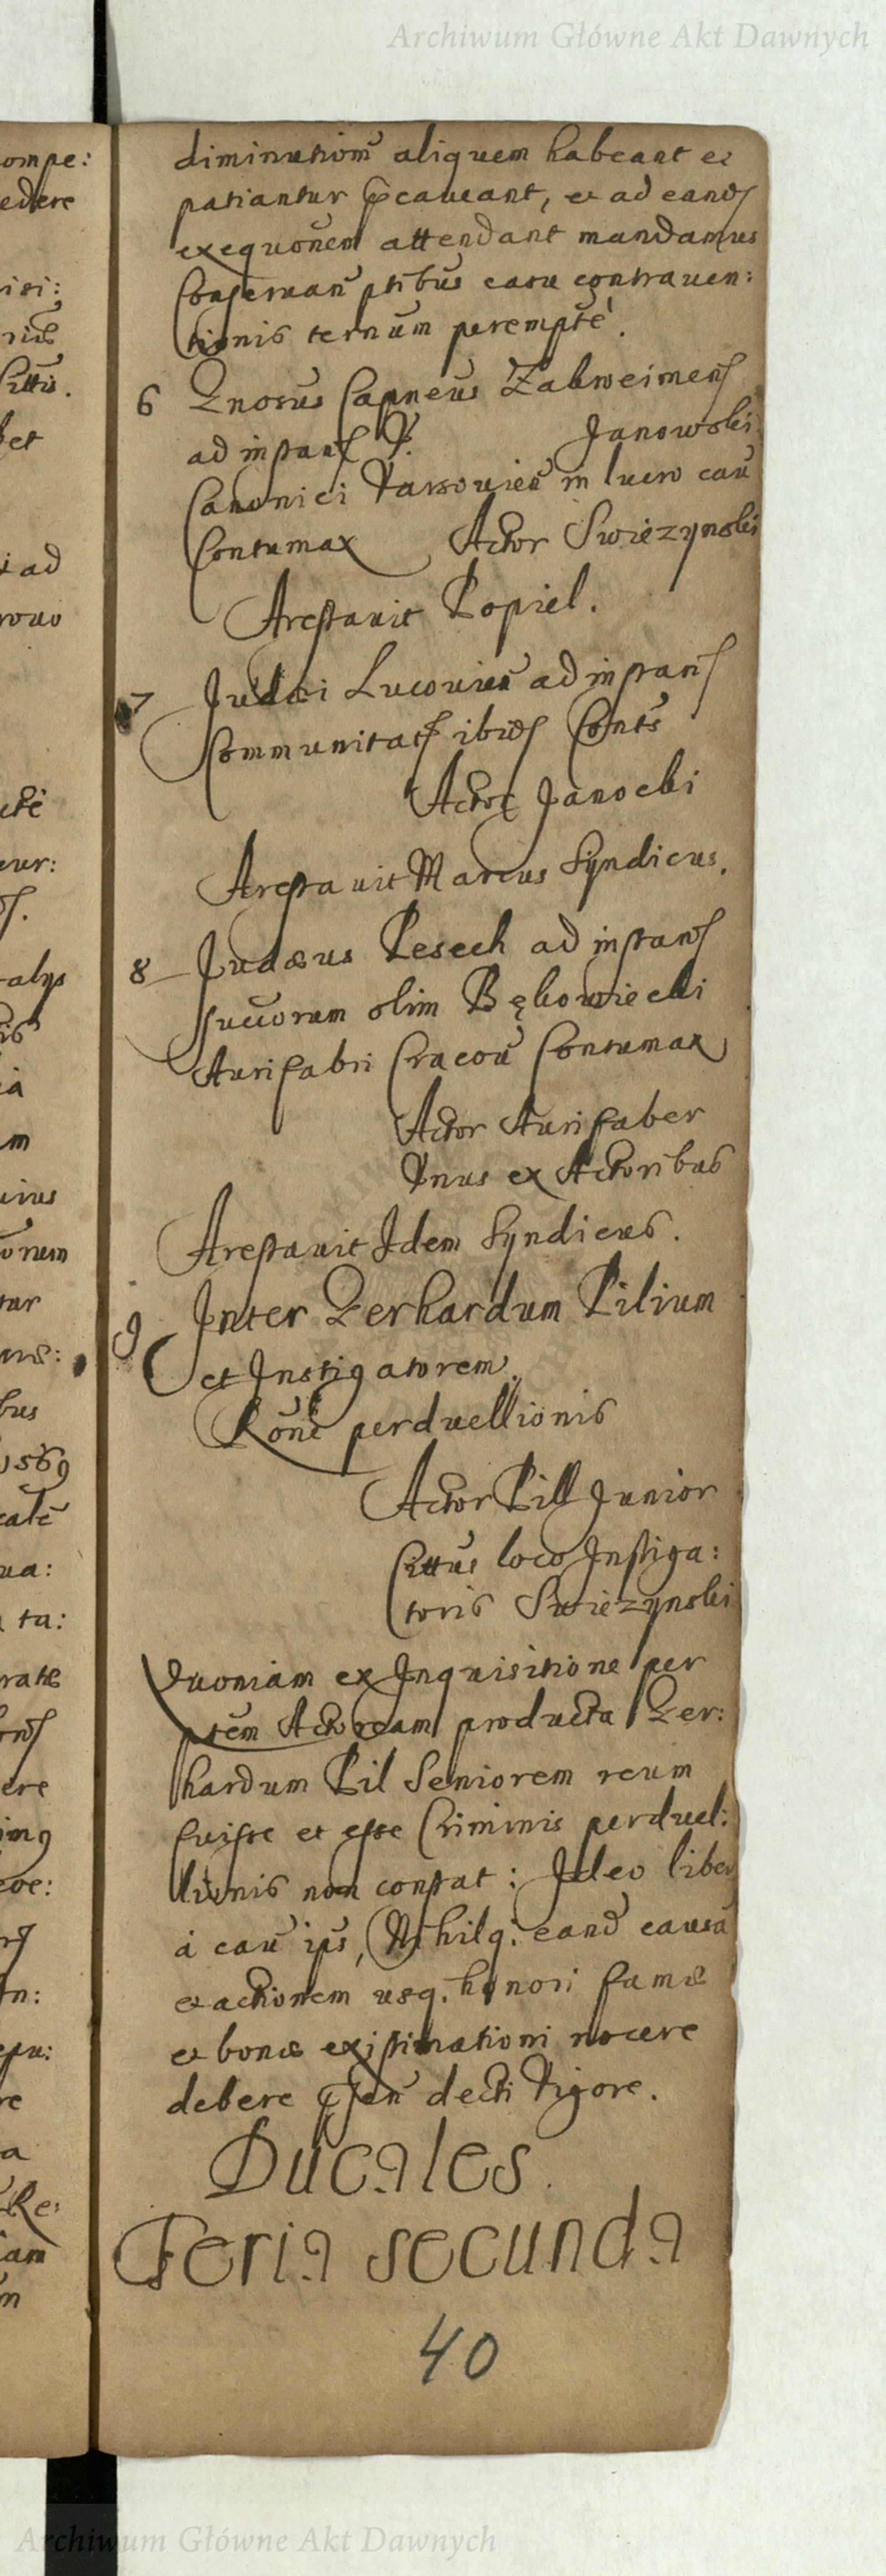 Archiwum Główne Akt Dawnych
diminutiom̃ aliquem habeant et
patiantur p̃caueant, et ad eand
exequõnem attendant mandamus
Conseruañ ptibus casu contrauen:
tionis ternum perempte.
6 Gnosus Capneus
ad instan V. Janowski
Canonici Varsouieñ in lucro cau
Contumax Actor Swiezynski
Arestauit Popiel.
7 Judæi Lucouieñ ad instan
Communitat ibid Conts
Actor Janocki
Arestauit Marcus Syndicus.
8 Judæus Pesech ad instan
succorum olim Bękowiecki
Aurifabri Cracoũ Contumax
Actor Aurifaber
Vnus ex Actoribus
Arestauit Idem Syndicus.
9 Inter Gerhardum Pilium
et Instigatorem.
Rõne perduellionis
Actor Pill Junior
Cittus loco Instiga:
toris Swiezynski
Quoniam ex Inquisitione per
ptem Actoream producta Ger:
hardum Pil Seniorem reum
fuisse et esse Criminis perduel:
lionis non constat: Ideo liber
à cau ips, Nihilq. eand causã
et actionem usq. honori famæ
et bonæ existimationi nocere
debere decti Vigore.
Ducales
Feria secunda
40
ompe:
edere
isi:
et
ad
ouo
eur:
alys
ia
m
uius
orum
tur
bus
1569
ua:
ta:
ere
eoe:
n:
epu:
re
a
Re:
iam
m
Archiwum Główne Akt Dawnych